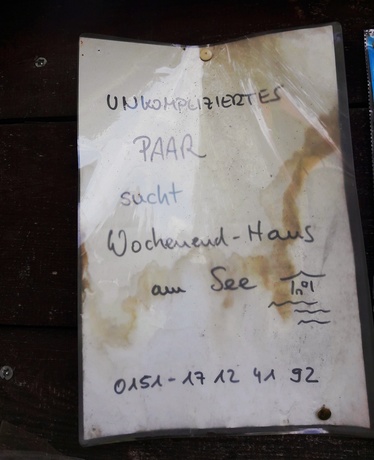 UNKOMPLIZIERTES
PAAR
sucht
Wochenend-Haus
am See
0151-17 12 41 92